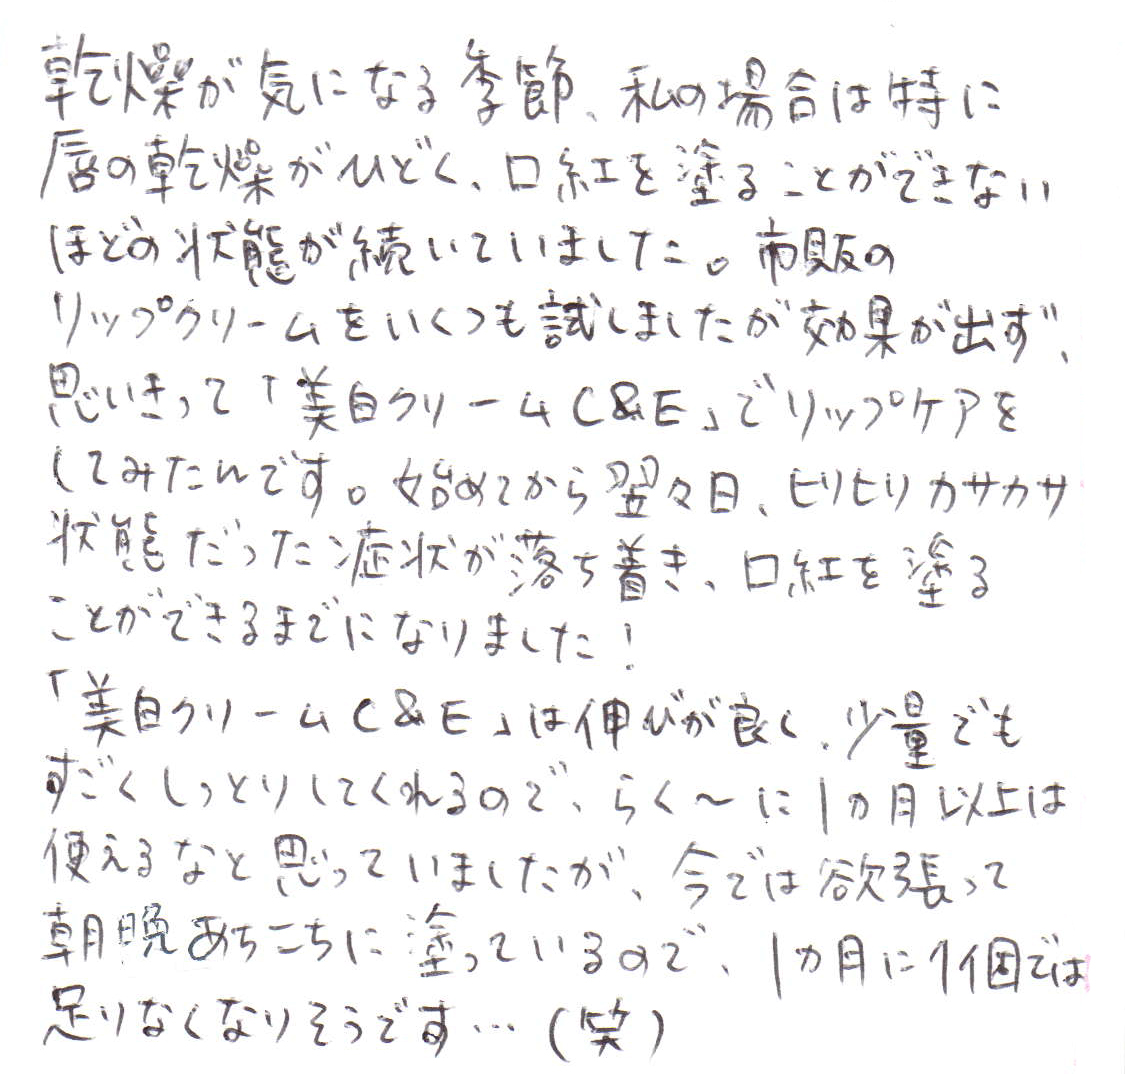 乾燥が気になる季節、私の場合は特に
唇の乾燥がひどく、口紅を塗ることができない
ほどの状態が続いていました。市販の
リップクリームをいくつも試しましたが効果が出ず、
思いきって「美白クリームC&E」でリップケアを
してみたんです。始めてから翌々日、ヒリヒリカサカサ
状態だった症状が落ち着き、口紅を塗る
ことができるまでになりました!
「美白クリームC&E」は伸びが良く、少量でも
すごくしっとりしてくれるので、らく〜に1ヵ月以上は
使えるなと思っていましたが、今では欲張って
朝晩あちこちに塗っているので、1ヵ月に1個では
足りなくなりそうです…(笑)